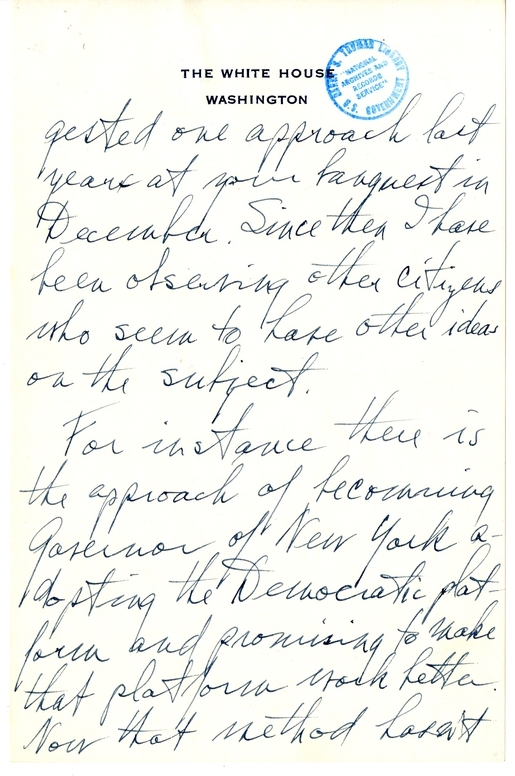 THE WHITE HOUSE
WASHINGTON
HARRY S. TRUMAN LIBRARY
"NATIONAL
ARCHIVES AND
RECORDS
SERVICE"
U.S. GOVERNMENT
gested one approach last
years at your banquest in
December. Since then I have
been observing other citizens
who seem to have other ideas
on the subject.
For instance there is
the approach of becomming
Governor of New York a-
dopting the Democratic plat-
form and promising to make
that platform work better.
Now that method hasn't